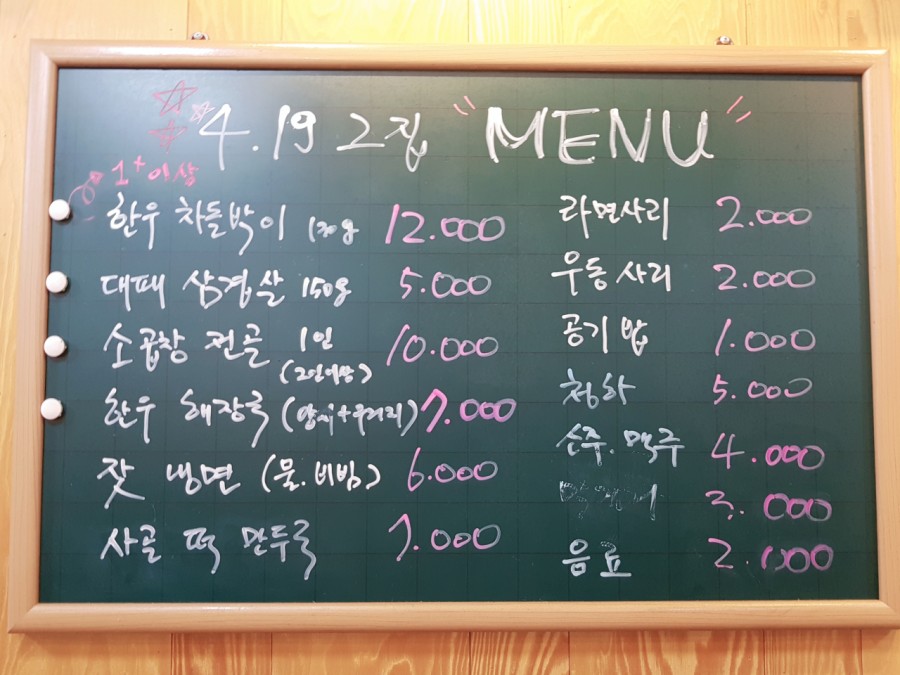 4.19 그집 "MENU"
1+이상
한우 차돌박이 130g 12.000
대패 삼겹살 150g 5.000
소곱창 전골 1인 10.000
(2인이상)
한우 해장국 (양지+우거지) 7.000
잣 냉면 (물.비빔) 6.000
사골 떡 만두국 7.000
라면사리 2.000
우동사리 2.000
공기밥 1.000
청하 5.000
소주.맥주 4.000
3.000
음료 2.000